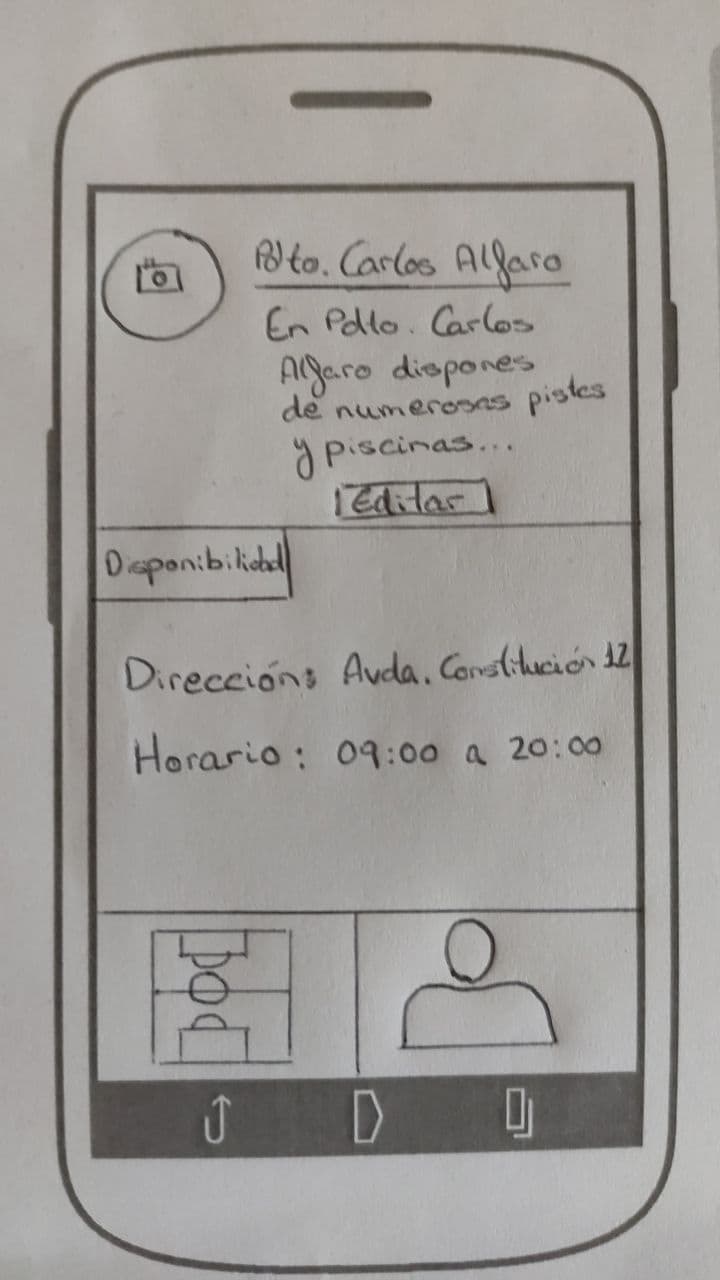 Pdto. Carlos Alfaro
En Pdto. Carlos
Alfaro dispones
de numerosas pistas
y piscinas...
Editar
Disponibilidad
Dirección: Avda. Constitución 12
Horario: 09:00 a 20:00